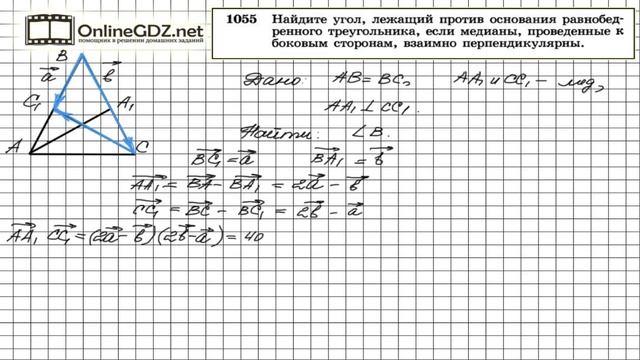 OnlineGDZ.net
помощник в решении домашних заданий
1055 Найдите угол, лежащий против основания равнобед-
ренного треугольника, если медианы, проведенные к
боковым сторонам, взаимно перпендикулярны.
B
a⃗ b⃗
C₁ A₁
A C
Дано: AB = BC, AA₁ и CC₁ – мед,
AA₁ ⊥ CC₁.
Найти: ∠B.
BC₁ = a⃗ BA₁ = b⃗
AA₁ = BA − BA₁ = 2a⃗ − b⃗
CC₁ = BC − BC₁ = 2b⃗ − a⃗
AA₁ CC₁ = (2a⃗ − b⃗)(2b⃗ − a⃗) = 40